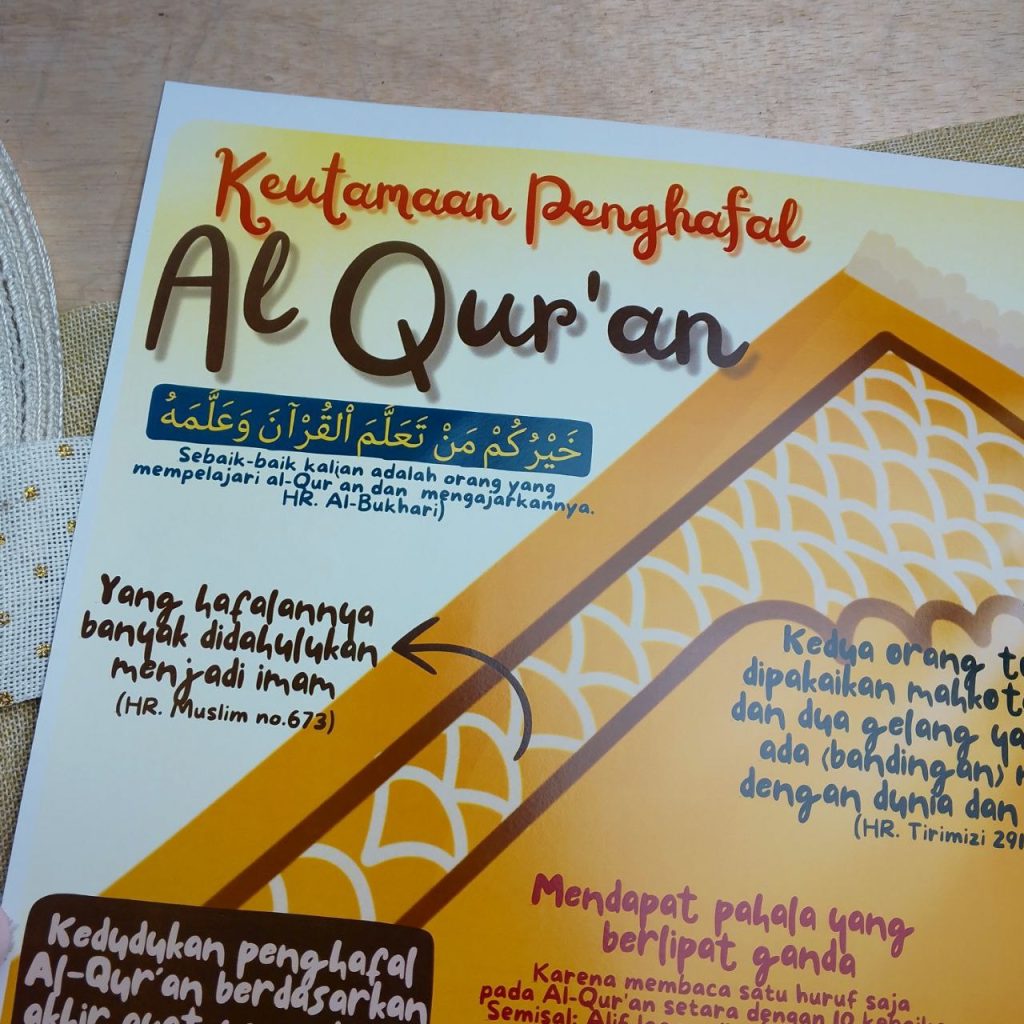 Keutamaan Penghafal
Al Qur'an
خَيْرُكُمْ مَنْ تَعَلَّمَ ٱلقُرْآنَ وَعَلَّمَهُ
Sebaik-baik kalian adalah orang yang
mempelajari al-Qur an dan mengajarkannya.
HR. Al-Bukhari)
Yang hafalannya
banyak didahulukan
menjadi imam
(HR. Muslim no.673)
Kedua orang
dipakaikan mahkota
dan dua gelang
ada (bandingan)
dengan dunia dan
(HR. Tirimizi
Mendapat pahala yang
berlipat ganda
Karena membaca satu huruf saja
pada Al-Qur'an setara dengan 10
Semisal: Alif
Kedudukan penghafal
Al-Qur'an berdasarkan
akhir ayat